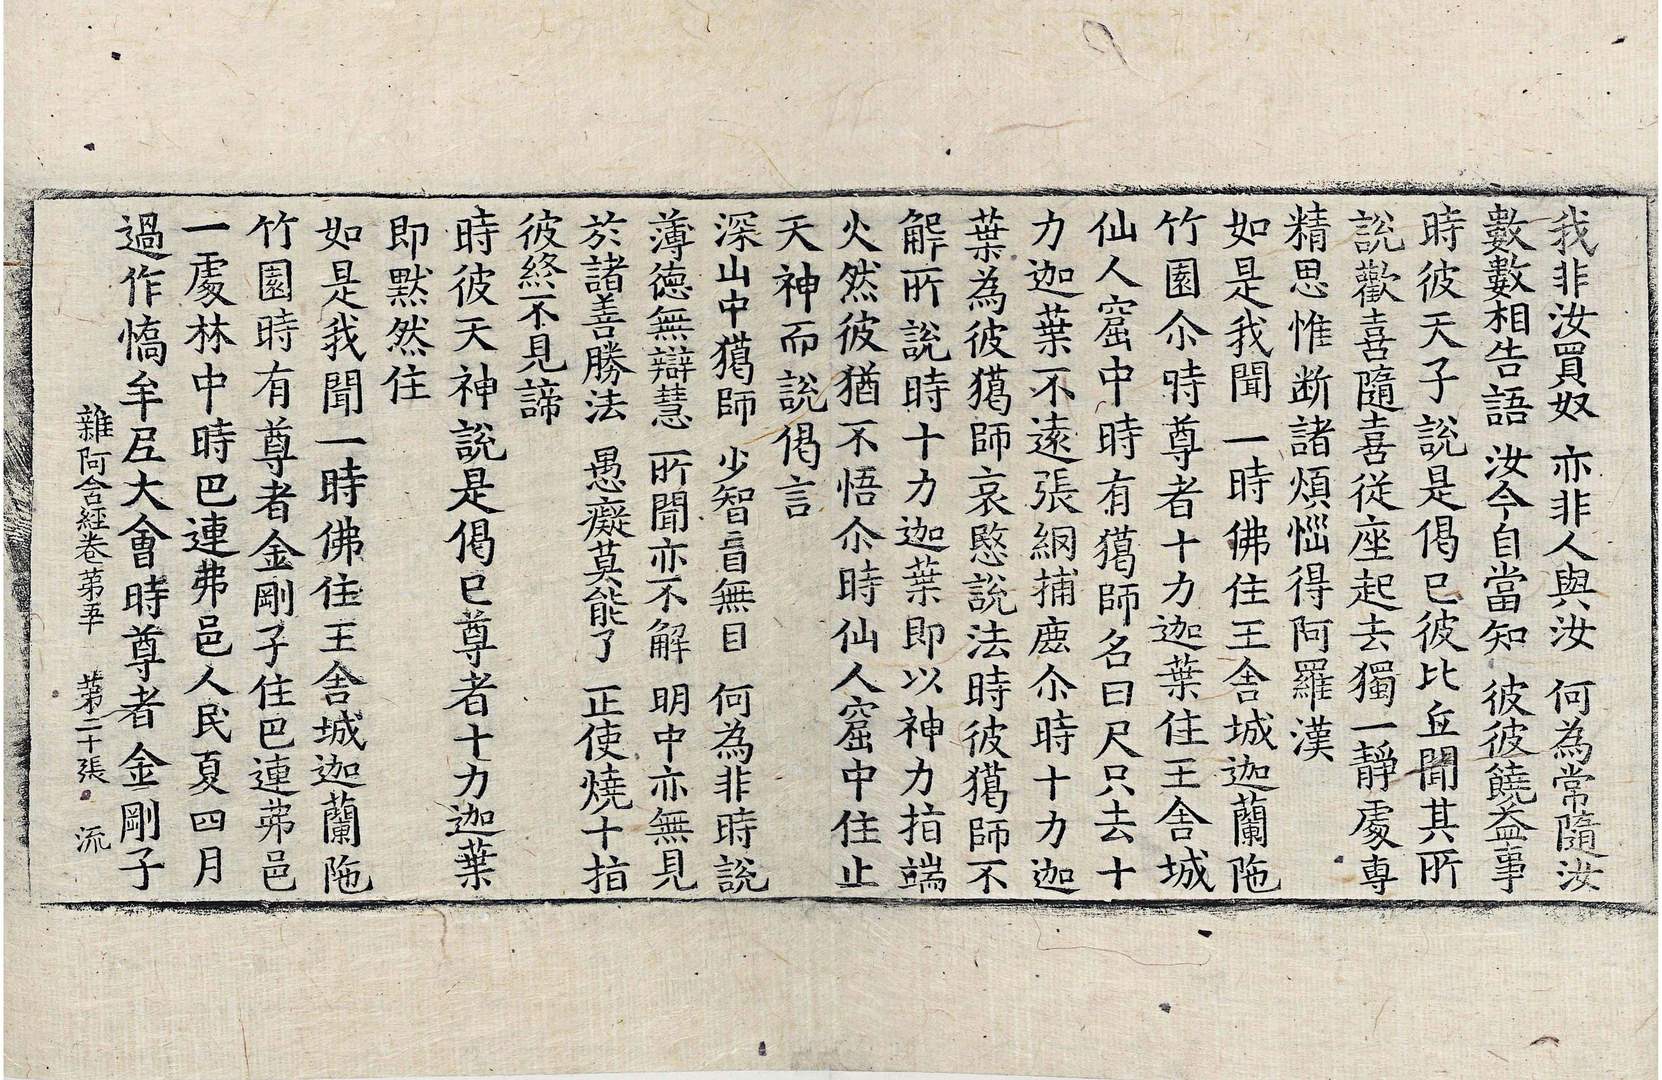 我非汝買奴 亦非人與汝 何為常隨汝
數數相告語 汝今自當知 彼彼饒益事
時彼天子說是偈已彼比丘聞其所
說歡喜隨喜從座起去獨一靜處專
精思惟斷諸煩惱得阿羅漢
如是我聞一時佛住王舍城迦蘭陁
竹園尒時尊者十力迦葉住王舍城
仙人窟中時有獦師名曰尺只去十
力迦葉不遠張網捕鹿尒時十力迦
葉為彼獦師哀愍說法時彼獦師不
解所說時十力迦葉即以神力指端
火然彼猶不悟尒時仙人窟中住止
天神而說偈言
深山中獦師 少智盲無目 何為非時說
薄德無辯慧 所聞亦不解 明中亦無見
於諸善勝法 愚癡莫能了 正使燒十指
彼終不見諦
時彼天神說是偈已尊者十力迦葉
即默然住
如是我聞一時佛住王舍城迦蘭陁
竹園時有尊者金剛子住巴連弗邑
一處林中時巴連弗邑人民夏四月
過作憍牟尼大會時尊者金剛子
雜阿含經卷第五十 第二十張 流